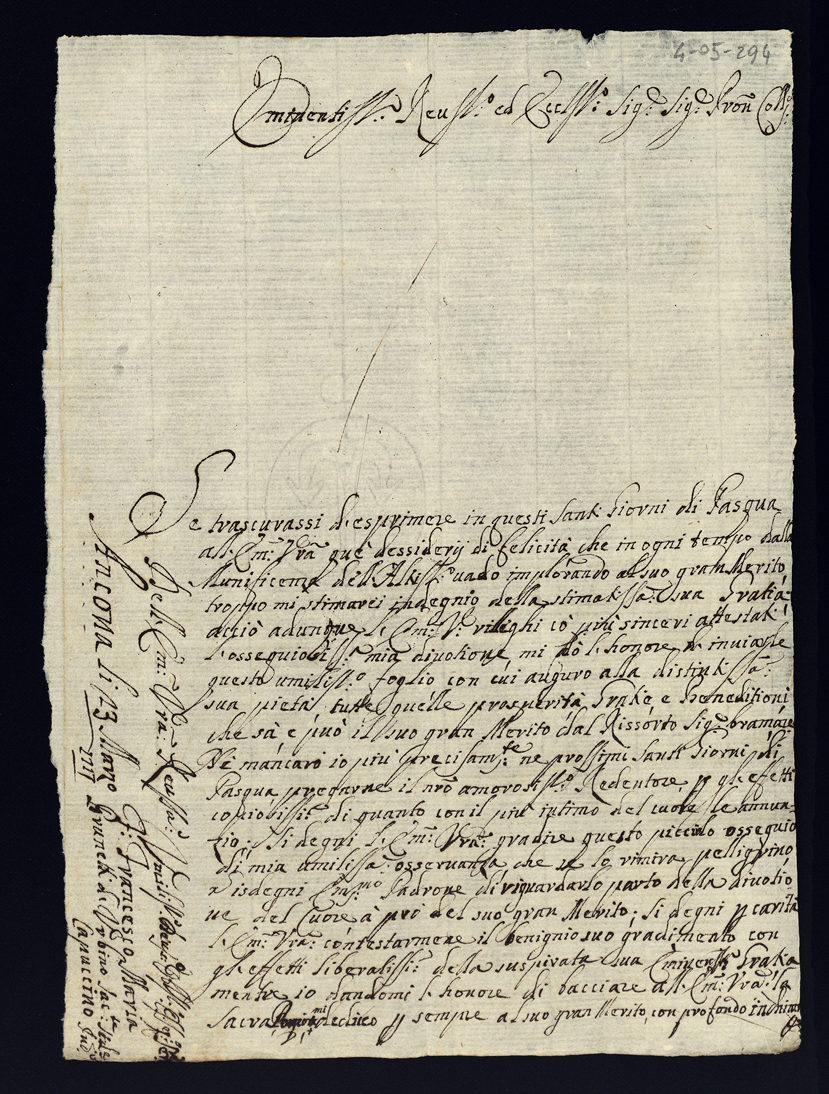 4-05-294
Eminentiss.º Reuss.º ed Eccless.º Sig.e Sig.e Pron Coll.º
Se trascurassi d'esprimere in questi Santi Giorni di Pasqua
all'Em: Vra que dessiderij di felicità che in ogni tempo dalla
Munificenza dell'Altiss.º uado implorando al suo gran Merito
troppo mi stimarei indegnio della stimatissa: sua Gratia
acciò adunque l'Em: V: rilleghi cò più sinceri attestati
l'ossequiosiss: mia diuotione, mi dò l'honore de inuiarle
questo umiliss.º foglio con cui auguro alla distintissa:
sua pietà tutte quelle prosperità Gratie, e Beneditioni
che sà e può il suo gran Merito dal Rissorto Sig.e bramare
Nè mancarò io più precisam.te ne prossimi Santi Giorni di
Pasqua pregarne il nrõ amorosiss.º Redentore, p gl'effetti
copiosissi: di quanto con il più intimo del cuore le annun-
tio: Si degni l'Em: Vra: gradire questo piccolo ossequio
di mia umilissa: osseruanza che se lo rimira pelligrino
n isdegni Em.mo Padrone di riguardarlo parto della diuotio
ne del Cuore à prò del suo gran Merito; Si degni p carità
l'Em: Vra: contestarmene il benignio suo gradimento con
gl'effetti liberalissi: della suspirata sua Eminentiss: Gratia
mentre io dandomi l'honore di bacciare all'Em: Vra: la
Sacra mi dedico p sempre al suo gran Merito, con profondo Inchino
Dell'Em: Vra: Reussa:
Ancona li 23 Marzo
1717
F: Francesco Maria
Brunetti di Urbino Sac.te
Capuccino